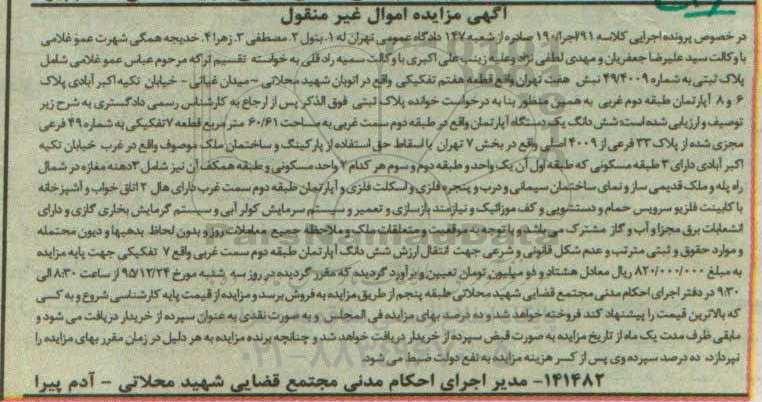 آگهی مزایده اموال غیر منقول
در خصوص پرونده اجرایی کلاسه ۹۱/اجرا/۱۹۰ صادره از شعبه ۱۴۷ دادگاه عمومی تهران له ۱. بتول ۲. مصطفی ۳. زهرا ۴. خدیجه همگی شهرت عمو غلامی
با وکالت سید علیرضا جعفریان و مهدی لطفی نژاد وعلیه زینب علی اکبری با وکالت سمیه راد قلی به خواسته تقسیم ترکه مرحوم عباس عمو غلامی شامل
پلاک ثبتی به شماره ۴۹/۴۰۰۹ نبش هفت تهران واقع قطعه هفتم تفکیکی واقع در اتوبان شهید محلاتی -میدان غیاثی - خیابان تکیه اکبر آبادی پلاک
۶ و ۸ آپارتمان طبقه دوم غربی به همین منظور بنا به درخواست خوانده پلاک ثبتی فوق الذکر پس از ارجاع به کارشناس رسمی دادگستری به شرح زیر
توصیف و ارزیابی شده است: شش دانگ یک دستگاه آپارتمان واقع در طبقه دوم سمت غربی به مساحت ۶۰/۶۱ متر مربع قطعه ۷ تفکیکی به شماره ۴۹ فرعی
مجزی شده از پلاک ۳۳ فرعی از ۴۰۰۹ اصلی واقع در بخش ۷ تهران با اسقاط حق استفاده از پارکینگ و ساختمان ملک موصوف واقع در غرب خیابان تکیه
اکبر آبادی دارای ۳ طبقه مسکونی که طبقه اول آن یک واحد و طبقه دوم و سوم هر کدام ۲ واحد مسکونی و طبقه همکف آن نیز شامل ۳ دهنه مغازه در شمال
راه پله و ملک قدیمی ساز و نمای ساختمان سیمانی و درب و پنجره فلزی و اسکلت فلزی و آپارتمان طبقه دوم سمت غرب دارای هال ۲ اتاق خواب و آشپزخانه
با کابینت فلزی و سرویس حمام و دستشویی و کف موزائیک و نیازمند بازسازی و تعمیر و سیستم سرمایش کولر آبی و سیستم گرمایش بخاری گازی و دارای
انشعابات برق مجزا و آب و گاز مشترک می باشد و با توجه به موقعیت و متعلقات ملک و ملاحظه جمیع معاملات روز و بدون لحاظ بدهیها و دیون محتمله
و موارد حقوق و ثبتی مترتب و عدم شکل قانونی و شرعی جهت انتقال ارزش شش دانگ آپارتمان طبقه دوم سمت غربی واقع ۷ تفکیکی جهت پایه مزایده
به مبلغ ۸۲۰/۰۰۰/۰۰۰ ریال معادل هشتاد و دو میلیون تومان تعیین و برآورد گردیده که مقرر گردیده در روز سه شنبه مورخ ۹۵/۱۲/۲۴ از ساعت ۸:۳۰ الی
۹:۳۰ در دفتر اجرای احکام مدنی مجتمع قضایی شهید محلاتی طبقه پنجم از طریق مزایده به فروش برسد و مزایده از قیمت پایه کارشناسی شروع و به کسی
که بالاترین قیمت را پیشنهاد کند فروخته خواهد شد و ده درصد بهای مزایده فی المجلس و به صورت نقدی به عنوان سپرده از خریدار دریافت می شود و
مابقی ظرف مدت یک ماه از تاریخ مزایده به صورت قبض سپرده از خریدار دریافت خواهد شد و چنانچه برنده مزایده به هر دلیل در زمان مقرر بهای مزایده را
نپردازد، ده درصد سپرده وی پس از کسر هزینه مزایده به نفع دولت ضبط می شود
۱۴۱۴۸۲- مدیر اجرای احکام مدنی مجتمع قضایی شهید محلاتی - آدم پیرا